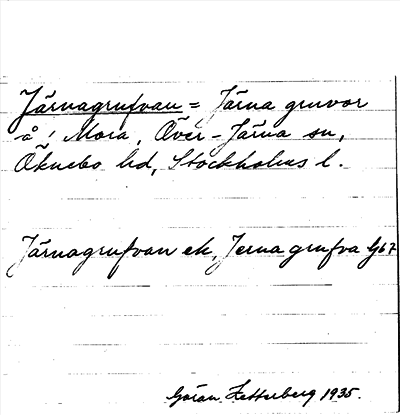 Järnagrufvan = Järna gruvor
å ! Mora, Över-Järna sn,
Öknebo hd, Stockholms l.
Järnagrufvan ek, Jerna grufva Gb 7
Göran Zetterberg 1935.